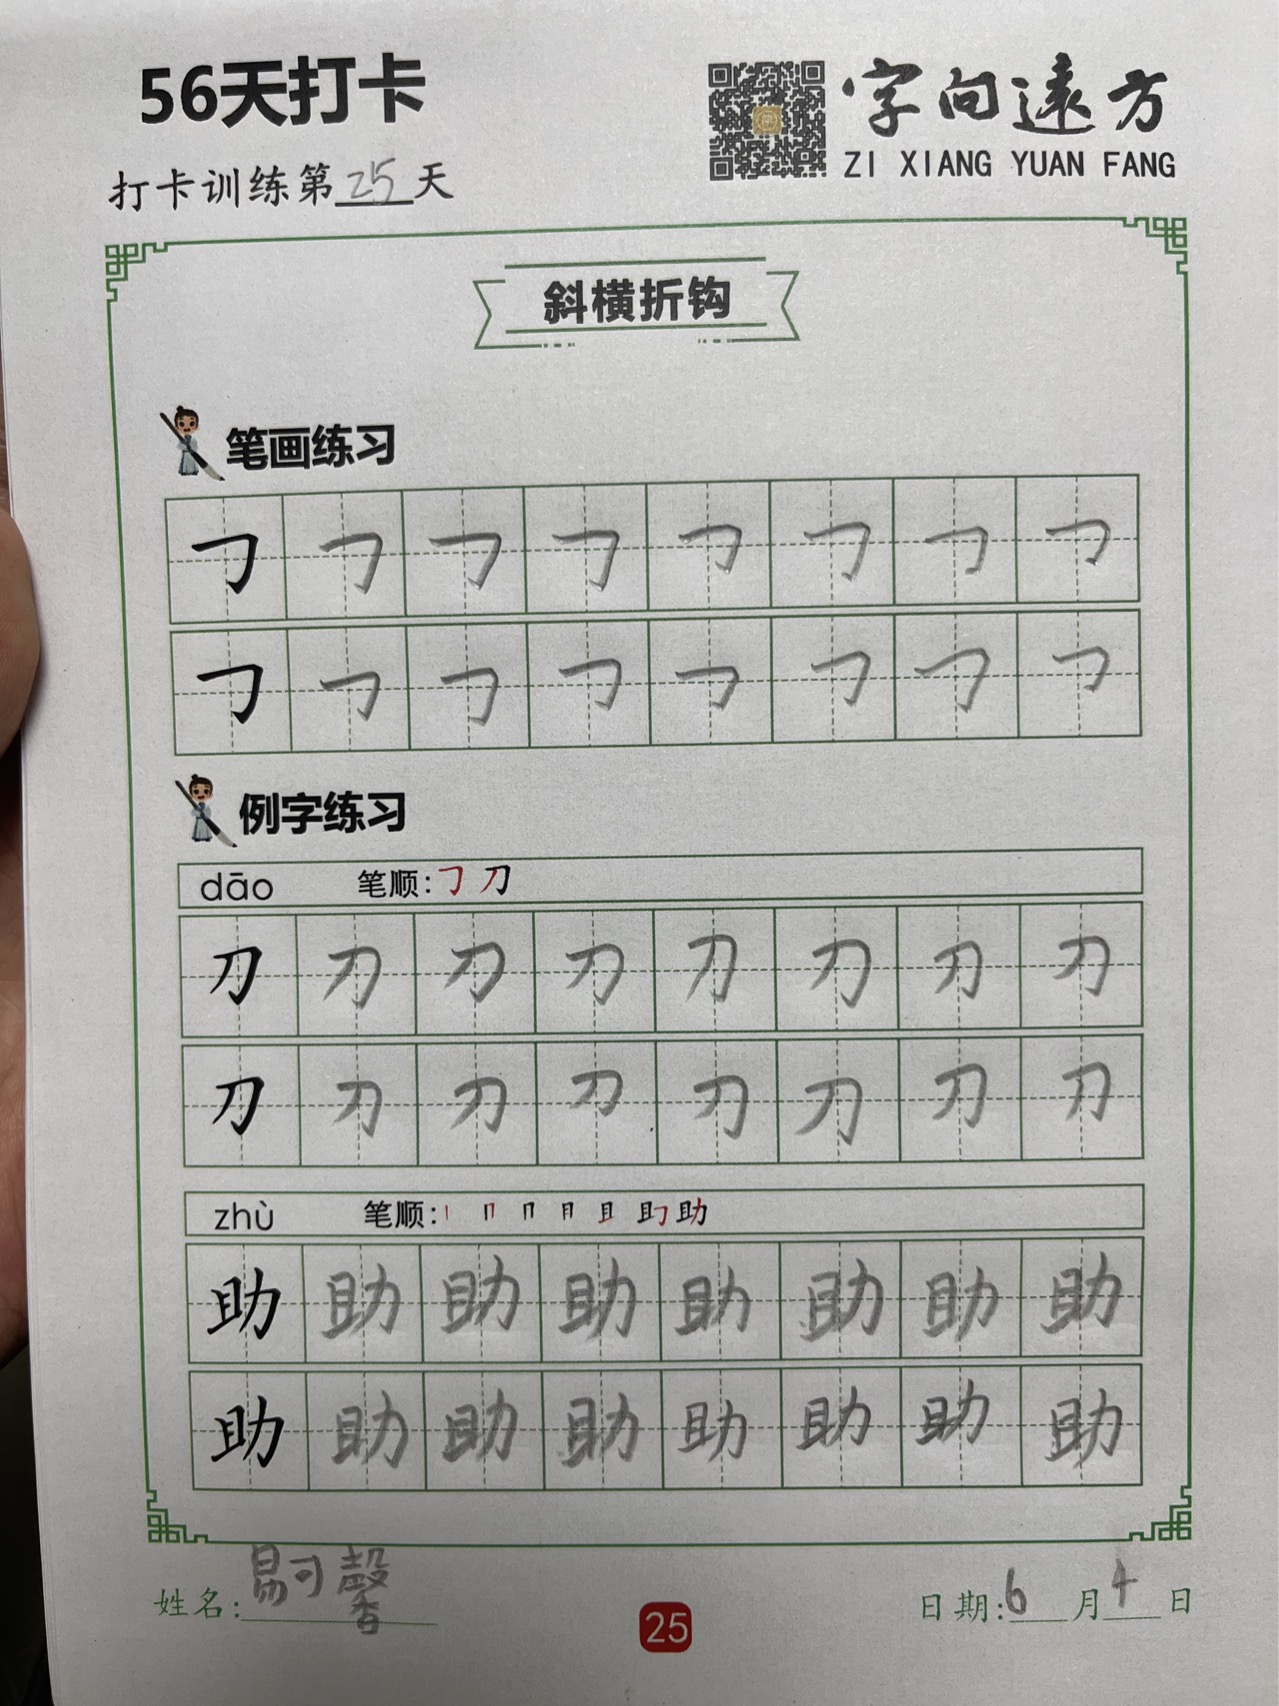 56天打卡
字向遠方
ZI XIANG YUAN FANG
打卡训练第25天
斜横折钩
笔画练习
㇆ ㇆ ㇆ ㇆ ㇆ ㇆ ㇆ ㇆
㇆ ㇆ ㇆ ㇆ ㇆ ㇆ ㇆ ㇆
例字练习
dāo 笔顺: ㇆ 刀
刀 刀 刀 刀 刀 刀 刀 刀
刀 刀 刀 刀 刀 刀 刀 刀
zhù 笔顺: 助
助 助 助 助 助 助 助 助
助 助 助 助 助 助 助 助
姓名: 易可馨
25
日期: 6月4日